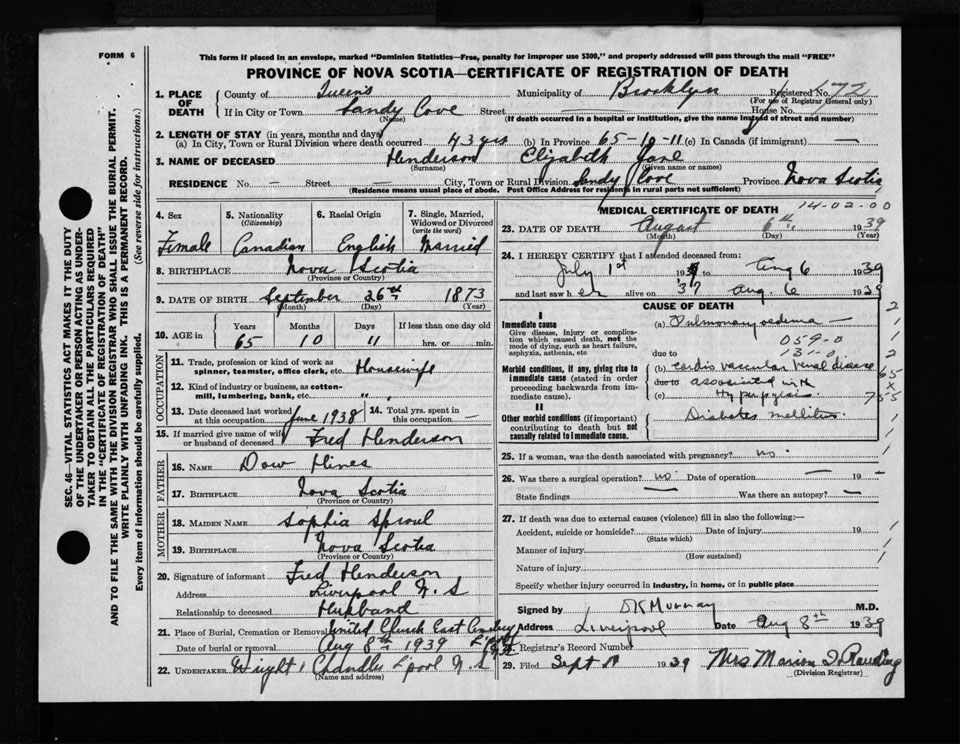 FORM 6
This form if placed in an envelope, marked "Dominion Statistics—Free, penalty for improper use $300," and properly addressed will pass through the mail "FREE"
PROVINCE OF NOVA SCOTIA—CERTIFICATE OF REGISTRATION OF DEATH
SEC. 46—VITAL STATISTICS ACT MAKES IT THE DUTY
OF THE UNDERTAKER OR PERSON ACTING AS UNDER-
TAKER TO OBTAIN ALL THE PARTICULARS REQUIRED
IN THE "CERTIFICATE OF REGISTRATION OF DEATH"
AND TO FILE THE SAME WITH THE DIVISION REGISTRAR WHO SHALL ISSUE THE BURIAL PERMIT.
WRITE PLAINLY WITH UNFADING INK. THIS IS A PERMANENT RECORD.
Every item of information should be carefully supplied. (See reverse side for instructions.)
1. PLACE OF DEATH County of Queens Municipality of Brooklyn Registered No. 172
(For use of Registrar General only)
If in City or Town Sandy Cove Street House No.
(Name) (If death occurred in a hospital or institution, give the name instead of street and number)
2. LENGTH OF STAY (in years, months and days)
(a) In City, Town or Rural Division where death occurred 43 yrs (b) In Province 65-10-11 (c) In Canada (if immigrant) —
3. NAME OF DECEASED Henderson Elizabeth Jane
(Surname) (Given name or names)
RESIDENCE No. — Street City, Town or Rural Division Sandy Cove Province Nova Scotia
(Residence means usual place of abode. Post Office Address for residents in rural parts not sufficient)
4. Sex 5. Nationality (Citizenship) 6. Racial Origin 7. Single, Married, Widowed or Divorced (write the word)
Female Canadian English Married
8. BIRTHPLACE Nova Scotia
(Province or Country)
9. DATE OF BIRTH September 26th 1873
(Month) (Day) (Year)
10. AGE in Years Months Days If less than one day old
65 10 11 hrs. or min.
OCCUPATION
11. Trade, profession or kind of work as spinner, teamster, office clerk, etc. Housewife
12. Kind of industry or business, as cotton-mill, lumbering, bank, etc. " "
13. Date deceased last worked at this occupation June 1938 14. Total yrs. spent in this occupation —
15. If married give name of wife or husband of deceased Fred Henderson
FATHER
16. NAME Dow Hines
17. BIRTHPLACE Nova Scotia
(Province or Country)
MOTHER
18. MAIDEN NAME Sophia Sproul
19. BIRTHPLACE Nova Scotia
(Province or Country)
20. Signature of informant Fred Henderson
Address Liverpool N.S
Relationship to deceased Husband
21. Place of Burial, Cremation or Removal United Church East Cemetery
Date of burial or removal Aug 8th 1939 L'pool
22. UNDERTAKER Wright & Chandler L'pool N.S
(Name and address)
MEDICAL CERTIFICATE OF DEATH 14-02-00
23. DATE OF DEATH August 6th 1939
(Month) (Day) (Year)
24. I HEREBY CERTIFY that I attended deceased from:
July 1st 1937 to Aug 6 1939
and last saw her alive on Aug. 6 1939
CAUSE OF DEATH
I
Immediate cause
Give disease, injury or complication which caused death, not the mode of dying, such as heart failure, asphyxia, asthenia, etc
(a) Pulmonary oedema —
059-0
131-0
due to
Morbid conditions, if any, giving rise to immediate cause (stated in order proceeding backwards from immediate cause).
(b) cardio vascular renal disease
due to associated with
(c) Hyperpiesis
II
Other morbid conditions (if important) contributing to death but not causally related to immediate cause.
Diabetes mellitus
25. If a woman, was the death associated with pregnancy? no
26. Was there a surgical operation? no Date of operation — 19 —
State findings — Was there an autopsy? —
27. If death was due to external causes (violence) fill in also the following:—
Accident, suicide or homicide? Date of injury 19
(State which)
Manner of injury
(How sustained)
Nature of injury
Specify whether injury occurred in industry, in home, or in public place
Signed by Murray M.D.
Address Liverpool Date Aug 8th 1939
28. Registrar's Record Number
29. Filed Sept 1939 Mrs Marion
(Division Registrar)